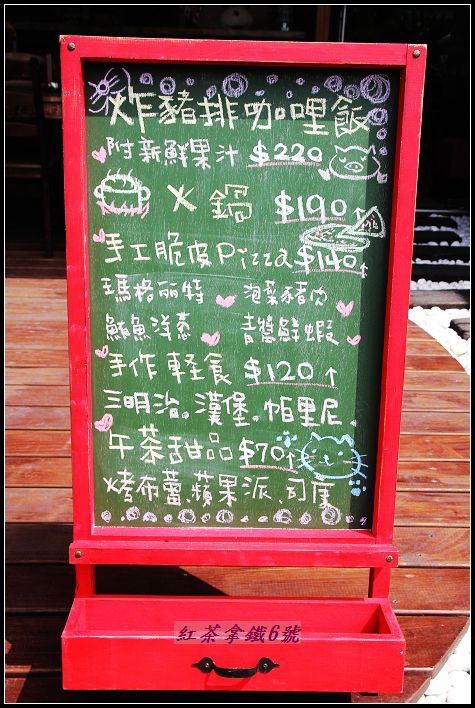 炸豬排咖哩飯
附新鮮果汁 $220
火鍋 $190↑
手工脆皮Pizza $140↑
瑪格丽特 泡菜豬肉
鮪魚洋蔥 青醬鮮蝦
手作輕食 $120↑
三明治.漢堡.帕里尼.
午茶甜品 $70↑
烤布蕾.蘋果派.司康
紅茶拿鐵6號